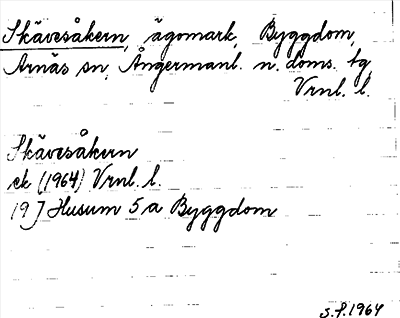 Skävesåkern, ägomark, Byggdom,
Arnäs sn, Ångermanl. n. doms. tg
Vrnl. l.
Skävesåkern
ek (1964) Vrnl. l.
19 J Husum 5 a Byggdom
S.P. 1964